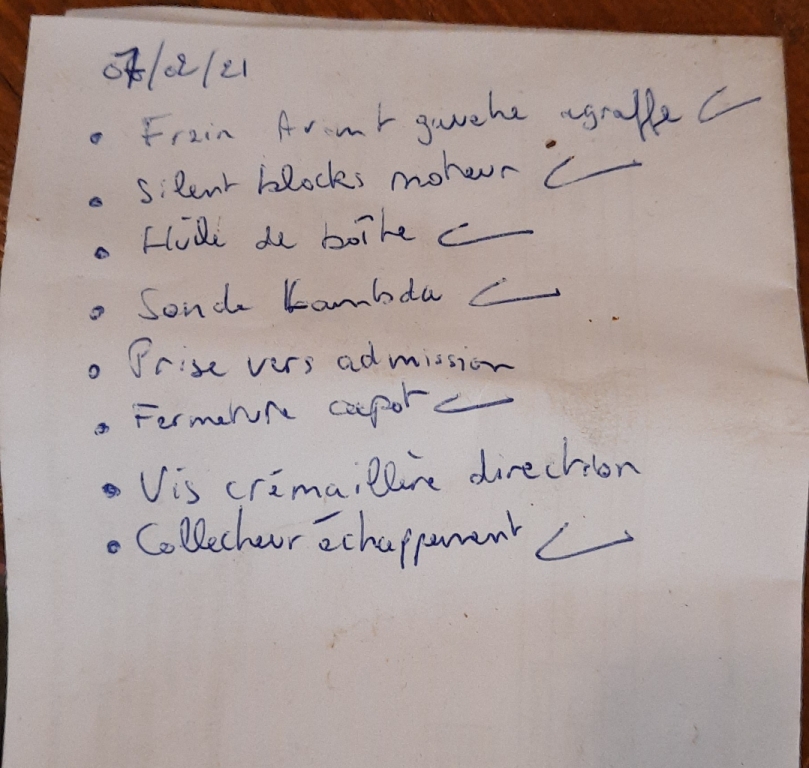 07/02/21
• Frein Avant gauche agraffe ✓
• Silent blocks moteur ✓
• Huile de boîte ✓
• Sonde Lambda ✓
• Prise vers admission
• Fermeture capot ✓
• Vis crémaillère direction
• Collecteur échappement ✓